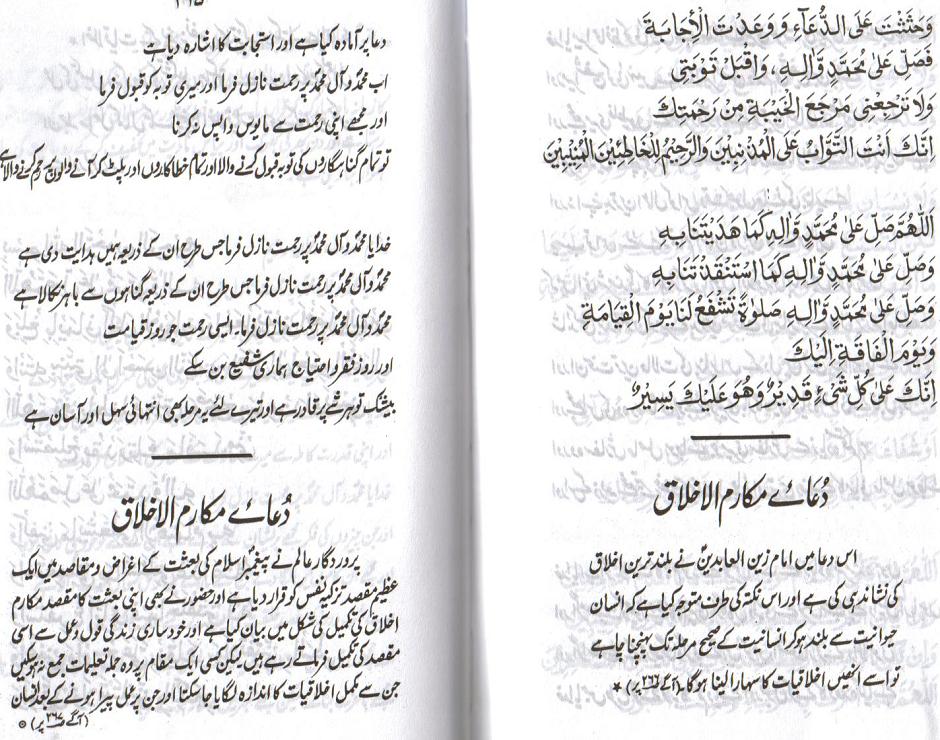 وَحَثَثْتَ عَلَى الدُّعَآءِ وَوَعَدْتَ الْاِجَابَةَ
فَصَلِّ عَلٰى مُحَمَّدٍ وَّاٰلِهٖ، وَاقْبَلْ تَوْبَتِىْ
وَلَا تَرْجِعْنِىْ مَرْجِعَ الْخَيْبَةِ مِنْ رَحْمَتِكَ
اِنَّكَ اَنْتَ التَّوَّابُ عَلَى الْمُذْنِبِيْنَ وَالرَّحِيْمُ لِلْخَاطِئِيْنَ الْمُنِيْبِيْنَ
اَللّٰهُمَّ صَلِّ عَلٰى مُحَمَّدٍ وَّاٰلِهٖ كَمَا هَدَيْتَنَا بِهٖ
وَصَلِّ عَلٰى مُحَمَّدٍ وَّاٰلِهٖ كَمَا اسْتَنْقَذْتَنَا بِهٖ
وَصَلِّ عَلٰى مُحَمَّدٍ وَّاٰلِهٖ صَلٰوةً تَشْفَعُ لَنَا يَوْمَ الْقِيَامَةِ
وَيَوْمَ الْفَاقَةِ اِلَيْكَ
اِنَّكَ عَلٰى كُلِّ شَىْءٍ قَدِيْرٌ وَهُوَ عَلَيْكَ يَسِيْرٌ
دُعائے مکارم الاخلاق
اس دعا میں امام زین العابدینؑ نے بلند ترین اخلاق
کی نشاندہی کی ہے اور اس نکتہ کی طرف متوجہ کیا ہے کہ انسان
حیوانیت سے بلند ہو کر انسانیت کے صحیح مرحلہ تک پہنچنا چاہے
تو اسے انھیں اخلاقیات کا سہارا لینا ہوگا۔ (آگے ص۳۶۶ پر) *
دعا پر آمادہ کیا ہے اور استجابت کا اشارہ دیا ہے
اب محمدؐ و آل محمدؐ پر رحمت نازل فرما اور میری توبہ کو قبول فرما
اور مجھے اپنی رحمت سے مایوس واپس نہ کرنا
تو تمام گناہگاروں کی توبہ قبول کرنے والا اور تمام خطاکاروں اور پلٹ کر آنے والوں پر رحم کرنے والا ہے
خدایا محمدؐ و آل محمدؐ پر رحمت نازل فرما جس طرح ان کے ذریعہ ہمیں ہدایت دی ہے
محمدؐ و آل محمدؐ پر رحمت نازل فرما جس طرح ان کے ذریعہ گناہوں سے باہر نکالا ہے
محمدؐ و آل محمدؐ پر رحمت نازل فرما۔ ایسی رحمت جو روز قیامت
اور روز فقر و احتیاج ہماری شفیع بن سکے
بیشک تو ہر شے پر قادر ہے اور تیرے لئے یہ مرحلہ بھی انتہائی سہل اور آسان ہے
دُعائے مکارم الاخلاق
پروردگار عالم نے پیغمبرؐ اسلام کی بعثت کے اغراض و مقاصد میں ایک
عظیم مقصد تزکیہ نفس کو قرار دیا ہے اور حضورؐ نے بھی اپنی بعثت کا مقصد مکارم
اخلاق کی تکمیل کی شکل میں بیان کیا ہے اور خود ساری زندگی قول و عمل سے اسی
مقصد کی تکمیل فرماتے رہے ہیں لیکن کسی ایک مقام پر وہ جملہ تعلیمات جمع نہ ہو سکیں
جن سے مکمل اخلاقیات کا اندازہ لگایا جا سکتا اور جن پر عمل پیرا ہونے کے بعد انسان
(آگے ص۳۶۸ پر)